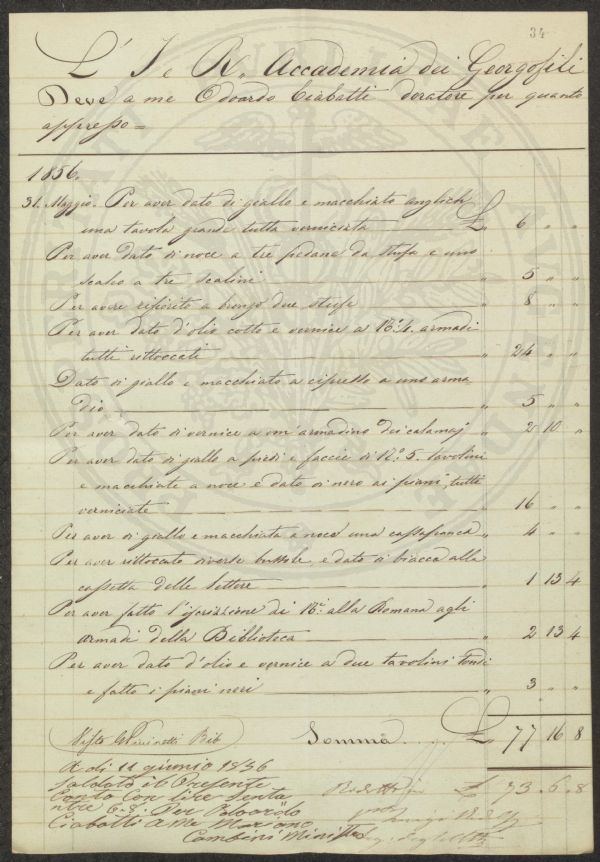 34
L' I e R. Accademia dei Georgofili
Deve a me Odoardo Ciabatti doratore per quanto
appresso =
1856.
31. Maggio. Per aver dato di giallo e macchiato
una tavola grande tutta verniciata £ 6 " "
Per aver dato di noce a tre pedane da stufa e uno
scaleo a tre scalini " 5 " "
Per avere rifiorito a bronzo due stufe " 8 " "
Per aver dato d'olio cotto e vernice a N.° 4. armadi
tutti rittoccati " 24 " "
Dato di giallo e macchiato a cipresso a uno arma-
dio " 5 " "
Per aver dato di vernice a un'armadino dei calamaj " 2 10 "
Per aver dato di giallo a piedi e faccie di N.° 5. tavolini
e macchiate a noce e dato di nero ai piani, tutte
verniciate " 16 " "
Per aver di giallo e macchiata a noce una cassapanca " 4 " "
Per aver rittoccato diverse bussole, e dato di biacca alla
cassetta delle lettere " 1 13 4
Per aver fatto l'iscrizione di N.i alla Romana agli
armadi della Biblioteca " 2 13 4
Per aver dato d'olio e vernice a due tavolini tondi
e fatto i piani neri " 3 " "
Visto Bib Somma £ 77 16 8
A dì 11 giugnio 1856
Saldato il Presente £ 73. 6. 8
Conto con lire Setta
ntre 6.8. Per
Ciabatti a Me Mariano
Cambini